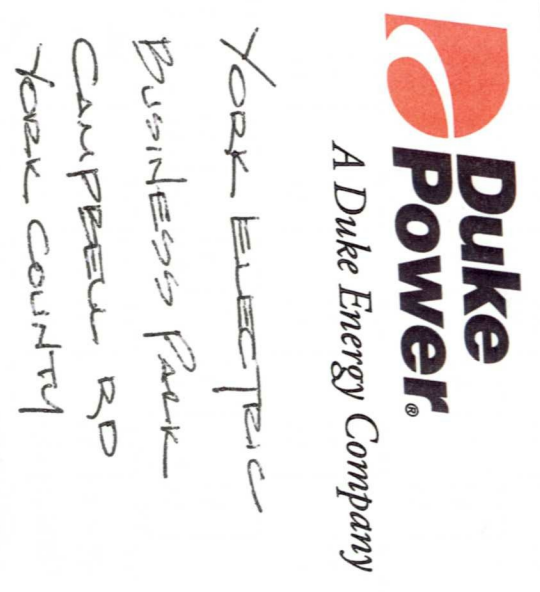 Duke
Power®
A Duke Energy Company
YORK ELECTRIC
BUSINESS PARK
CAMPBELL RD
YORK COUNTY